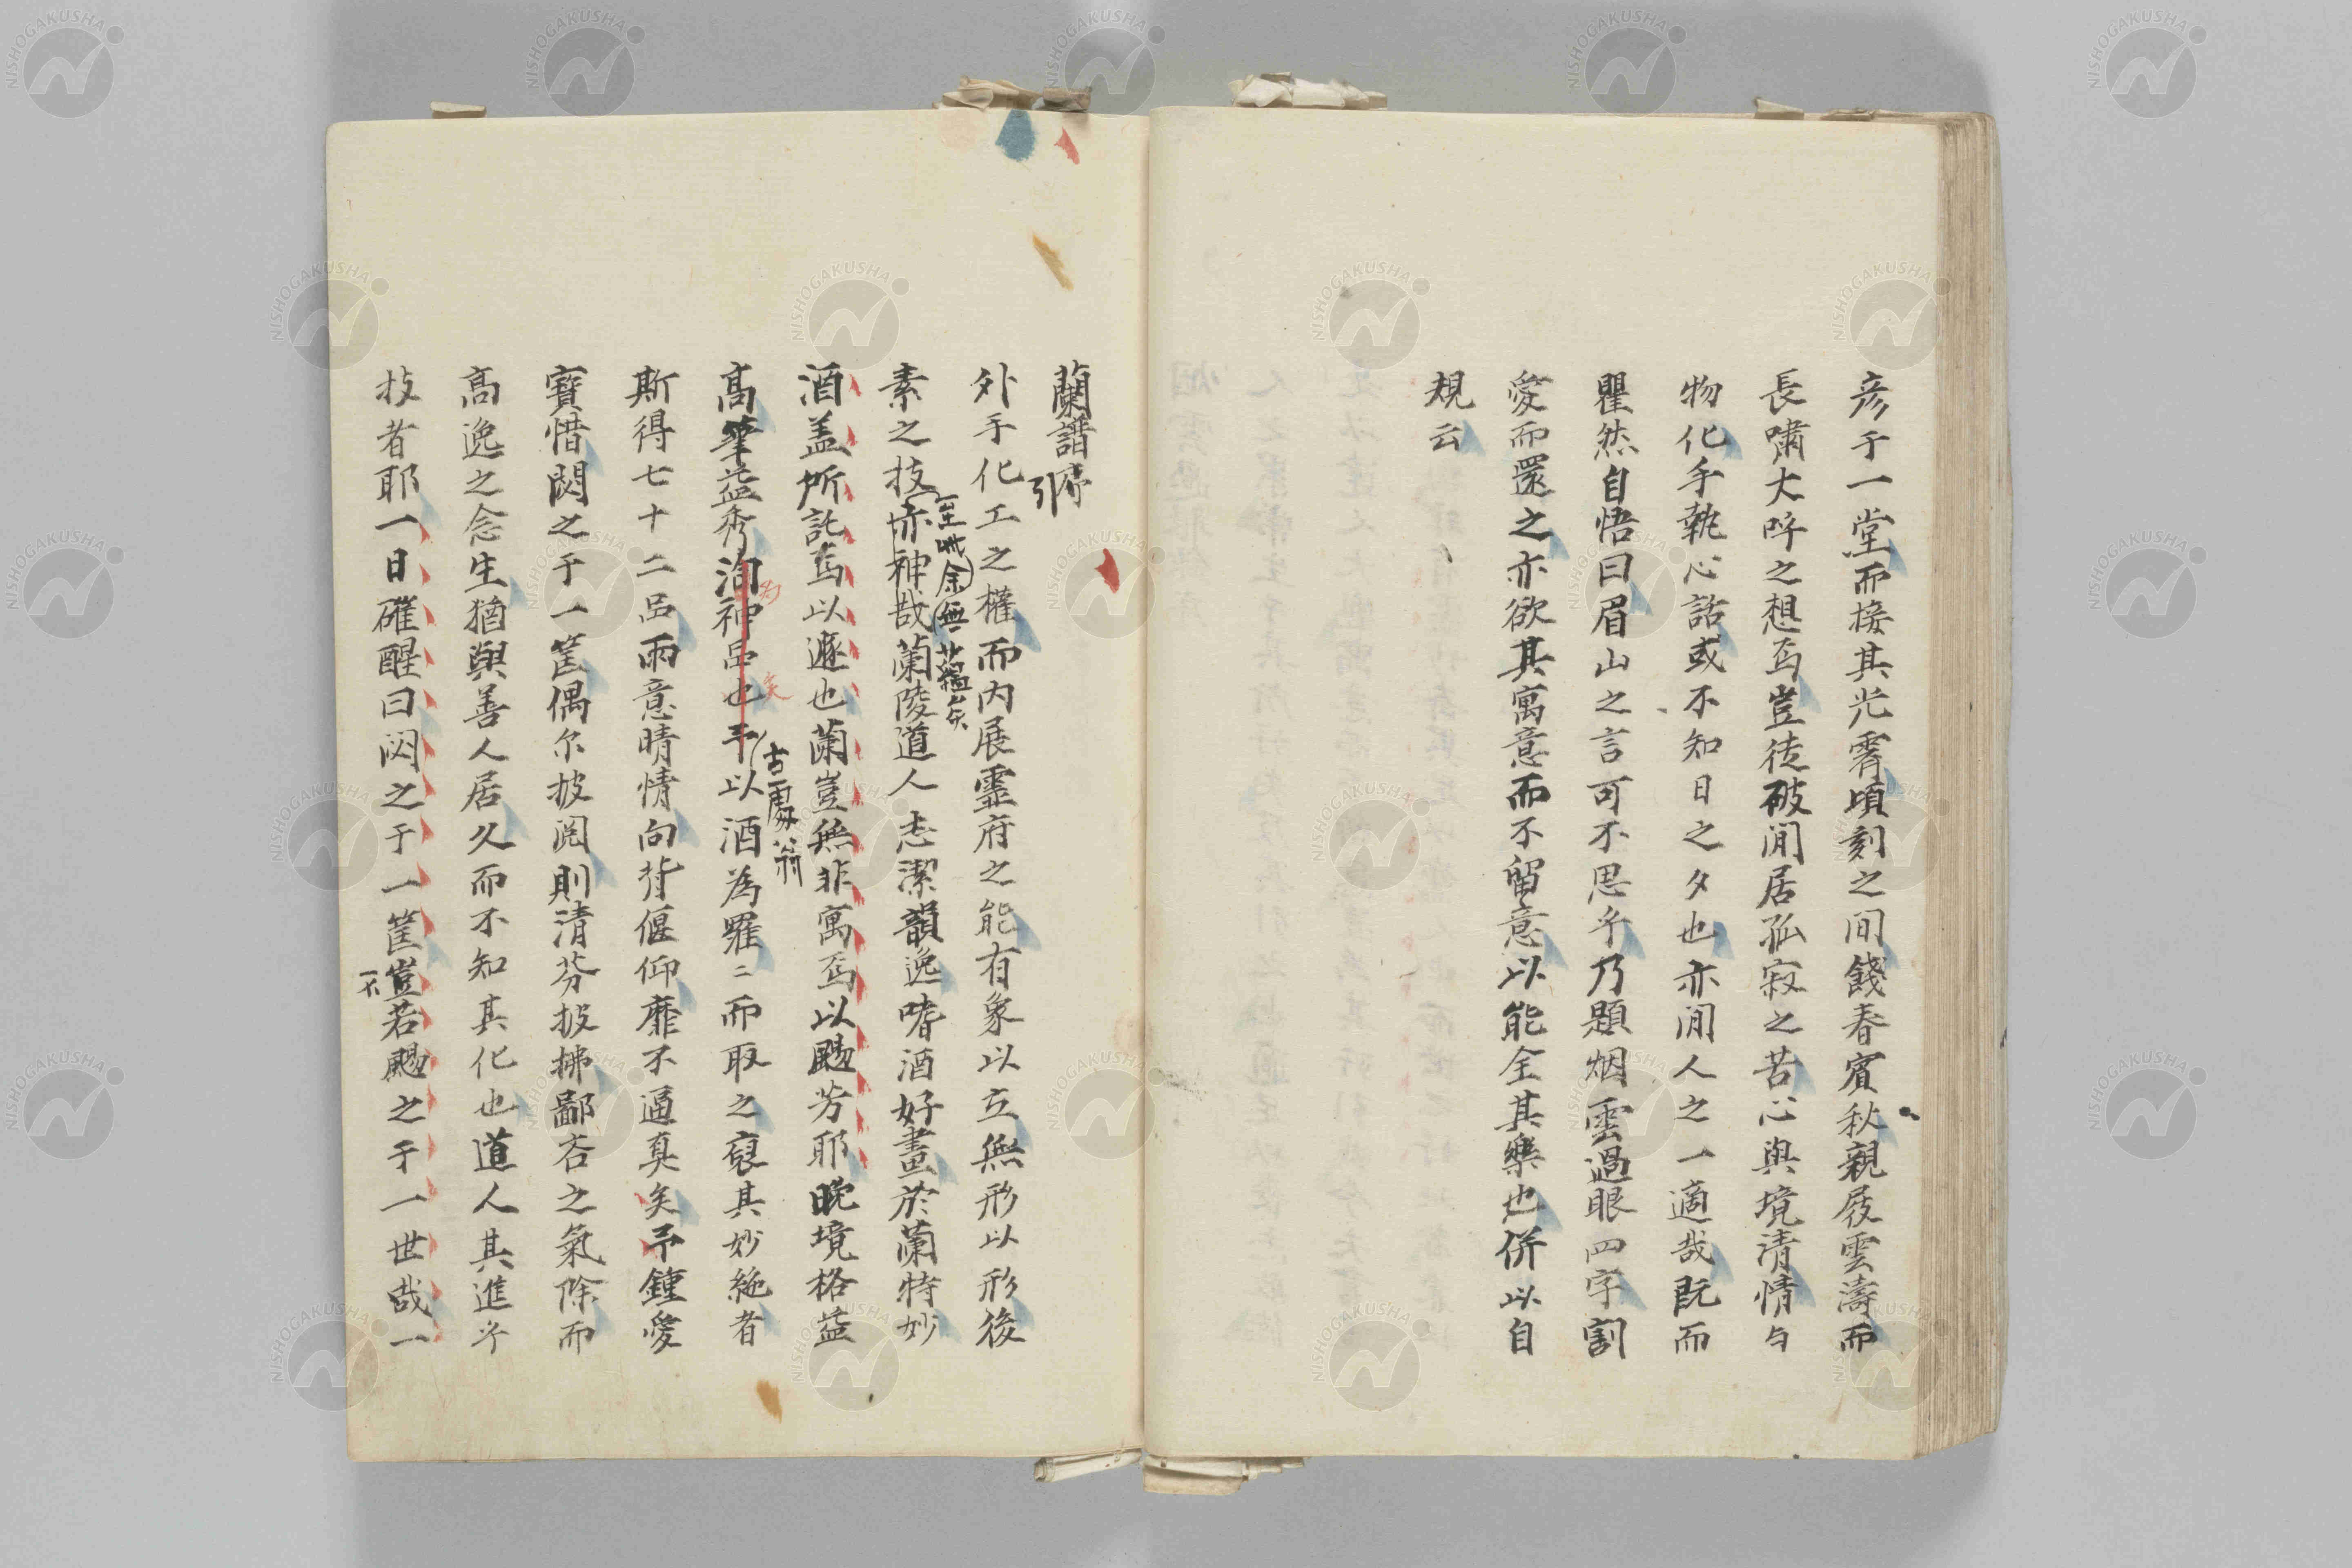 彦于一堂而接其光霽頃刻之间餞春賓秋親屐雲濤而
長嘯大呼之想焉豈徒破閒居孤寂之苦心與境清情与
物化手執心話或不知日之夕也亦閒人之一適哉既而
瞿然自悟曰眉山之言可不思乎乃題烟雲過眼四字割
愛而還之亦欲其寓意而不留意以能全其樂也併以自
規云
蘭譜序
引
外于化工之權而内展靈府之能有象以立無形以形後
至此余無蘊矣
素之技亦神哉蘭陵道人志潔韻逸嗜酒好畫於蘭特妙
酒盖所託焉以遯也蘭豈無非寓焉以颺芳耶晚境格益
高筆益秀洵神品也予以酒為羅〻而取之裒其妙絶者
為
矣
古處翁
斯得七十二品雨意晴情向背偃仰靡不逼真矣予鍾愛
寶惜閟之于一筐偶尔披閲則清芬披拂鄙吝之氣除而
高逸之念生猶與善人居久而不知其化也道人其進乎
技者耶一日確醒曰閟之于一筐豈若颺之于一世哉一
不
NISHOGAKUSHA